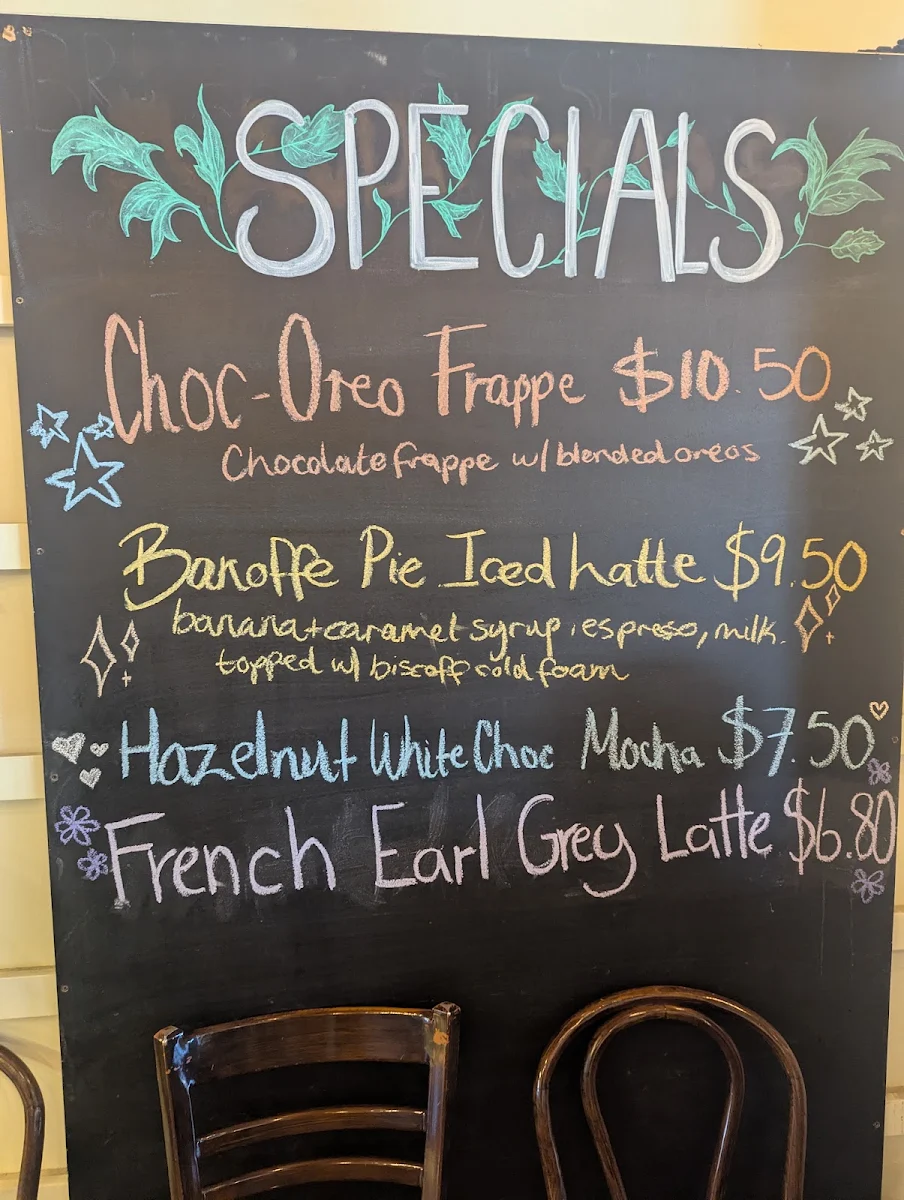 SPECIALS
Choc-Oreo Frappe $10.50
Chocolate frappe w/ blended oreos
Banoffe Pie Iced Latte $9.50
banana + caramel syrup, espresso, milk.
topped w/ biscoff cold foam
Hazelnut White Choc Mocha $7.50
French Earl Grey Latte $6.80